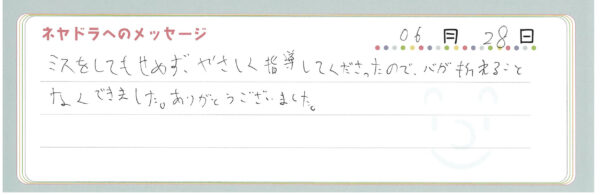 ネヤドラへのメッセージ
06 月 28 日
ミスをしてもせめず、やさしく指導してくださったので、心が折れること
なくできました。ありがとうございました。